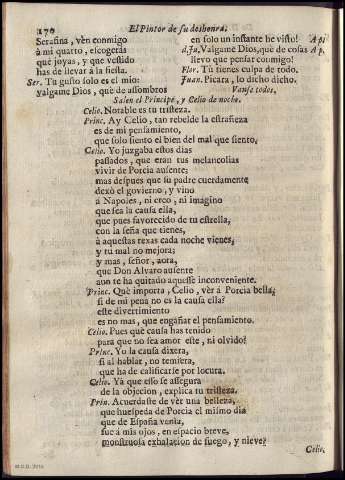 170
El Pintor de su deshonra.
Serafina, vèn conmigo
à mi quarto, escogeràs
què joyas, y què vestido
has de llevar à la fiesta.
Ser. Tu gusto solo es el mio:
valgame Dios, què de assombros
en solo un instante he visto! A p.
d.Ju. Valgame Dios, què de cosas A p.
llevo que pensar conmigo!
Flor. Tù tienes culpa de todo.
Juan. Picara, lo dicho dicho.
Vanse todos.
Salen el Principe, y Celio de noche.
Celio. Notable es tu tristeza.
Princ. Ay Celio, tan rebelde la estrañeza
es de mi pensamiento,
que solo siento el bien del mal que siento.
Celio. Yo juzgaba estos dias
passados, que eran tus melancolias
vivir de Porcia ausente;
mas despues que su padre cuerdamente
dexò el govierno, y vino
à Napoles, ni creo, ni imagino
que sea la causa ella,
que pues favorecido de tu estrella,
con la seña que tienes,
à aquestas rexas cada noche vienes,
y tu mal no mejora;
y mas, señor, aora,
que Don Alvaro ausente
aun te ha quitado aquesse inconveniente.
Princ. Què importa, Celio, vèr à Porcia bella,
si de mi pena no es la causa ella?
este divertimiento
es no mas, que engañar el pensamiento.
Celio. Pues què causa has tenido
para que no sea amor este, ni olvido?
Princ. Yo la causa dixera,
si al hablar, no temiera,
que ha de calificarse por locura.
Celio. Yà que esso se assegura
de la objecion, explica tu tristeza.
Prin. Acuerdaste de vèr una belleza,
que huespeda de Porcia el mismo dia
que de España venìa,
fue à mis ojos, en espacio breve,
monstruosa exhalacion de fuego, y nieve?
Celio.